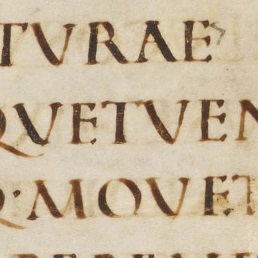 TVRAE
QVETVEN
Q·MOVET